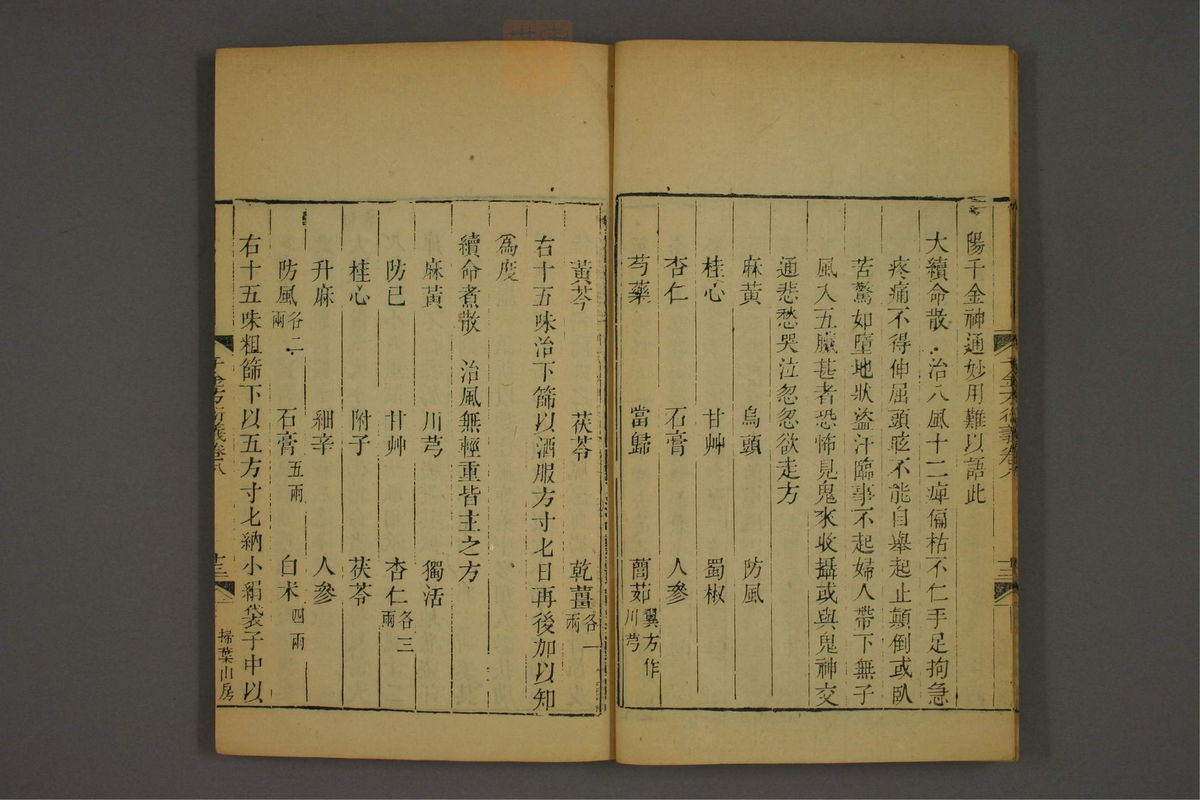 陽千金神通妙用難以語此
大續命散治八風十二痺偏枯不仁手足拘急
疼痛不得伸屈頭眩不能自舉起止顛倒或臥
苦驚如墮地狀盜汗臨事不起婦人帶下無子
風入五臟甚者恐怖見鬼來收攝或與鬼神交
通悲愁哭泣忽忽欲走方
麻黃 烏頭 防風
桂心 甘艸 蜀椒
杏仁 石膏 人參
芍藥 當歸 䕡茹翼方作川芎
黃芩 茯苓 乾薑各一兩
右十五味治下篩以酒服方寸七日再後加以知
為度
續命煮散 治風無輕重皆主之方
麻黃 川芎 獨活
防已 甘艸 杏仁各三兩
桂心 附子 茯苓
升麻 細辛 人參
防風各二兩 石膏五兩 白朮四兩
右十五味粗篩下以五方寸七納小絹袋子中以
千金方衍義卷八
十三
掃葉山房